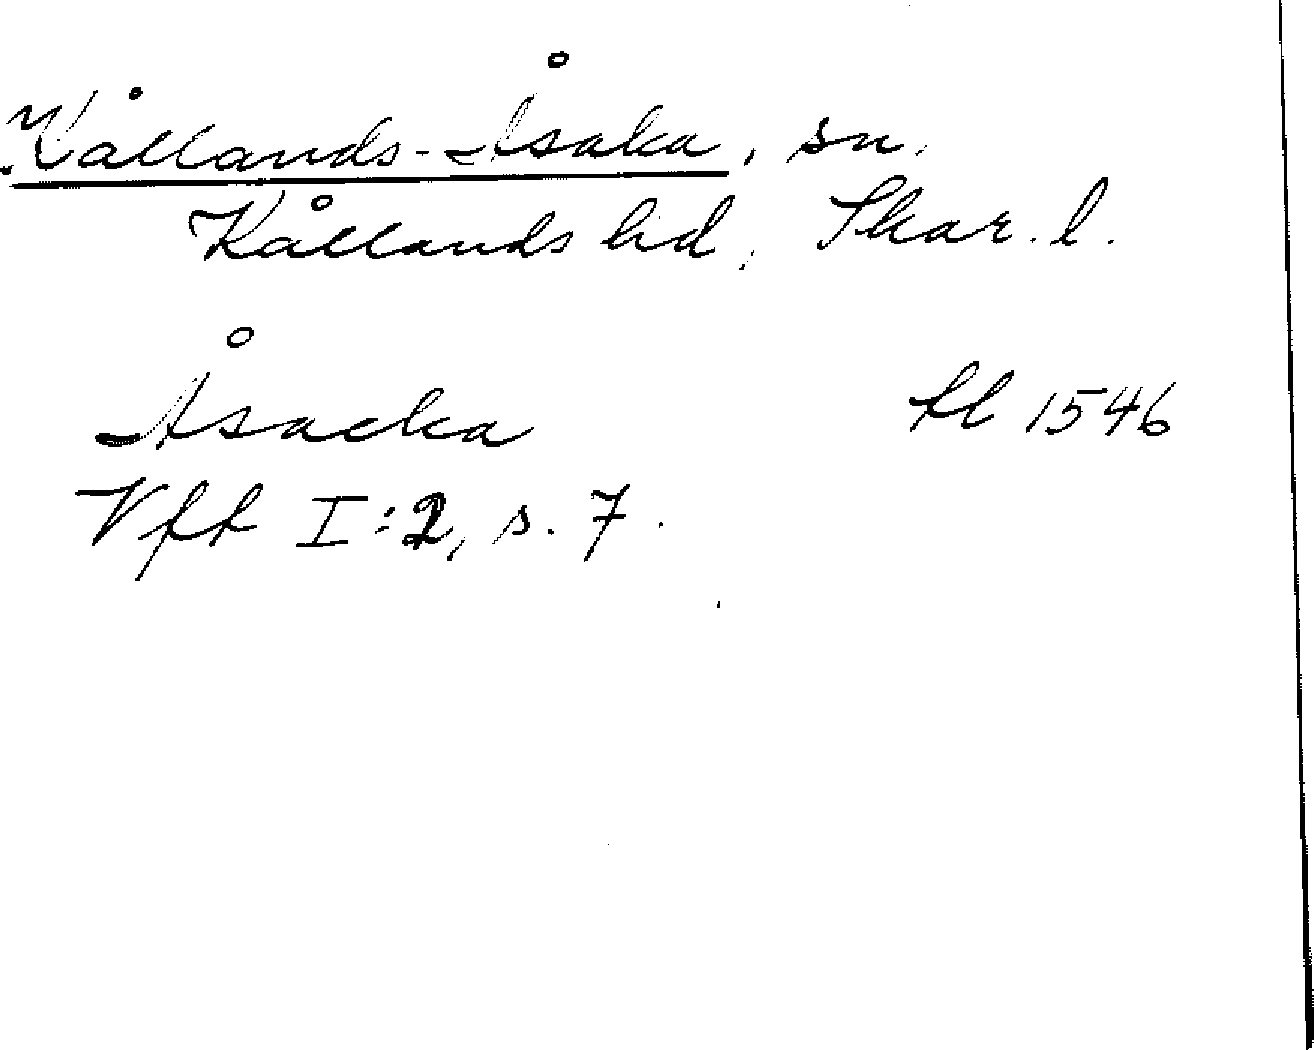 Kållands-Åsaka, sn,
Kållands hd, Skar. l.
Åsacka fl 1546
Vfft I:2, s. 7.